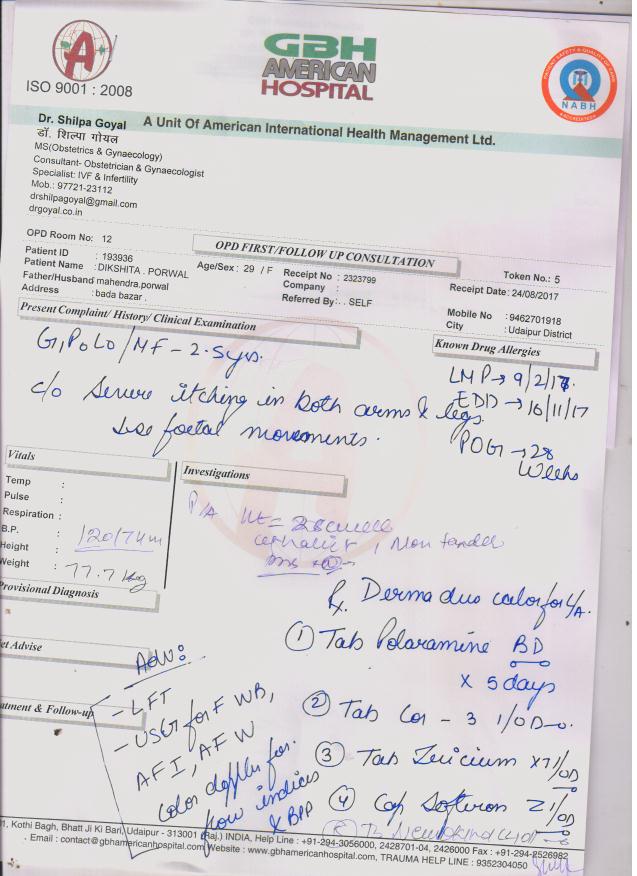 A
ISO 9001 : 2008
GBH
AMERICAN
HOSPITAL
PATIENT SAFETY & QUALITY OF CARE
NABH
ACCREDITATED
A Unit Of American International Health Management Ltd.
Dr. Shilpa Goyal
डॉ. शिल्पा गोयल
MS(Obstetrics & Gynaecology)
Consultant- Obstetrician & Gynaecologist
Specialist: IVF & Infertility
Mob.: 97721-23112
drshilpagoyal@gmail.com
drgoyal.co.in
OPD Room No: 12
OPD FIRST/FOLLOW UP CONSULTATION
Token No.: 5
Patient ID : 193936
Patient Name : DIKSHITA . PORWAL
Age/Sex : 29 / F
Receipt No : 2323799
Receipt Date: 24/08/2017
Father/Husband mahendra.porwal
Company :
Address : bada bazar .
Referred By: . . SELF
Mobile No : 9462701918
City : Udaipur District
Present Complaint/ History/ Clinical Examination
Known Drug Allergies
G1P0L0/MF - 2.5yrs.
LMP→ 9/2/17.
EDD → 16/11/17
POG → 28
Weeks
c/o Severe itching in both arms & legs.
foetal movements.
Vitals
Temp :
Pulse :
Respiration :
B.P. : 120/74
Height :
Weight : 77.7 kg
Investigations
P/A
Provisional Diagnosis
et Advise
atment & Follow-up
Adv:
- LFT
- USG for FWB,
AFI, AFW
Color doppler for
flow indices
& BPP
Rx. Derma duo calor for L/A.
① Tab Polaramine BD
x 5 days
② Tab Cor - 3 1/OD
③ Tab 1/OD
④ Cap Softeron Z 1/OD
1, Kothi Bagh, Bhatt Ji Ki Bari, Udaipur - 313001 (Raj.) INDIA, Help Line : +91-294-3056000, 2428701-04, 2426000 Fax : +91-294-2526982
Email : contact@gbhamericanhospital.com, Website : www.gbhamericanhospital.com, TRAUMA HELP LINE : 9352304050